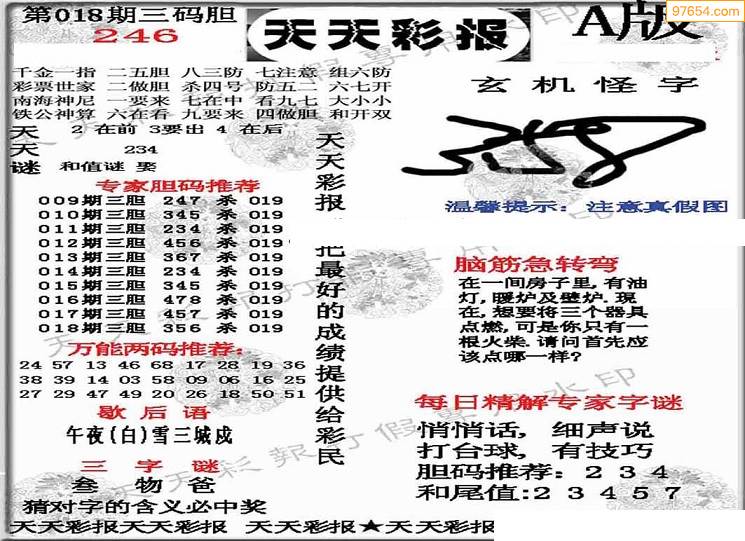 97654.com
第018期三码胆
246
天天彩报
A版
千金一指 二五胆 八三防 七注意 组六防
彩票世家 二做胆 杀四号 防五二 六七开
南海神尼 一要来 七在中 看九七 大小小
铁公神算 六在看 九要来 四做胆 和开双
天 2 在前 3要出 4 在后
天 234
谜 和值谜 娶
专家胆码推荐
009期三胆 247 杀 019
010期三胆 345 杀 019
011期三胆 234 杀 019
012期三胆 456 杀 019
013期三胆 367 杀 019
014期三胆 234 杀 019
015期三胆 345 杀 019
016期三胆 478 杀 019
017期三胆 457 杀 019
018期三胆 356 杀 019
万能两码推荐:
24 57 13 46 68 17 28 19 36
38 39 14 03 58 09 06 16 25
27 29 47 49 20 26 18 50 51
歇后语
午夜(白)雪三城戍
三字谜
叁 物 爸
猜对字的含义必中奖
天天彩报
把最好的成绩提供给彩民
玄机怪字
温馨提示: 注意真假图
脑筋急转弯
在一间房子里,有油
灯,暖炉及壁炉.現
在,想要将三个器具
点燃,可是你只有一
根火柴.请问首先应
该点哪一样?
每日精解专家字谜
悄悄话, 细声说
打台球, 有技巧
胆码推荐: 2 3 4
和尾值:2 3 4 5 7
天天彩报天天彩报 天天彩报★天天彩报